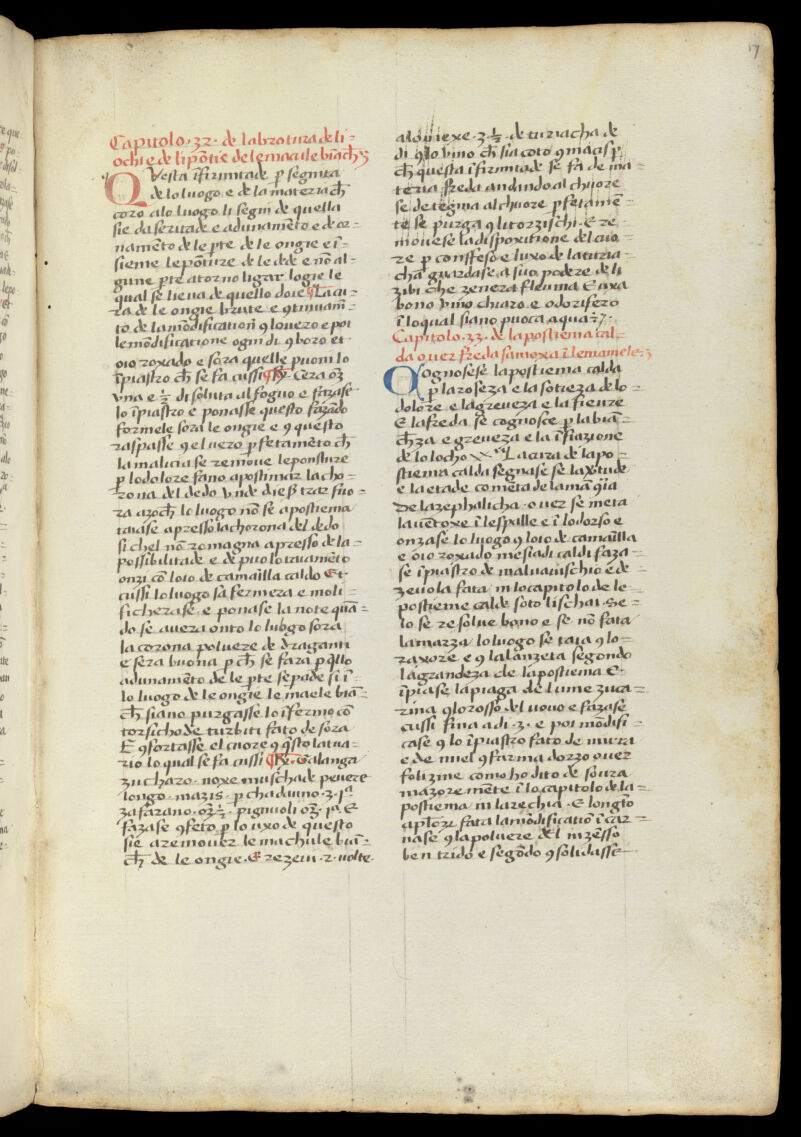 17
Capitolo · 32 · de la brotura de li
ochi e de li põtie de le macule biãch
Questa ĩfirmitade ꝑ segnita
de lo luogo e de la materia ch̃
coro a lo luogo li segni de quella
sie da seruade e adunamẽto e de or-
namẽto de le ꝑte de le ongie e ĩ-
sieme le põture de le dede e nõ al-
gune ꝑte atorno ligar logie le
qual se lieua de quello doie ¶ La cu-
ra de le ongie brute e ꝯtinuam̃-
to de la modification̄ ꝯ louero e poi
le mõdificatione ogni di ꝯ boro et
oio roxado e sora quelle puoni lo
ĩpiastro ch̃ se fa cussi ¶ ℞ · Cera oʒ
vna e ½ disoluta al foguo e fazase
lo ĩpiastro e ponasse questo fazãdo
formele sora le ongie e ꝯ questo
raspasse ꝯ el uero ꝑfetamẽto ch̃
la malicia se remoue le ponsture
ꝑ lo dolore fano apostimar la cho-
rona del dedo vnde die
ra azoch̃ lo luogo nõ se apostema
taiase apresso la chorona del dedo
si chel nõ romagna apresso de la-
possibilitade e de puo lo taiamẽto
onzi cõ loio de camailla caldo Et
cussi lo luogo sã fermeza e moli-
ficherase e ponase la note quã-
do se auera onto lo luogo sora
la corona poluere de draganti
e sera buona ꝑch̃ se fara ꝑ q̃llo
adunamẽto de le ꝑte separade si ĩ-
lo luogo de le ongie le maele biã-
ch̃ siano purgasse lo ĩfermo cõ
torsicho de turbiti fato de sora
E ꝯfortasse el cuore ꝯ q̃sto latua-
rio lo qual se fa cussi ¶ ℞ · Galanga
zucharo · noxe muschade peuere
longo · mazis · ꝑ chadauno · ʒ · jª
zafarano · oʒ ½ · pignuoli oʒ · jª E
fazase ꝯfeto ꝑ lo uxo de questo
sie a remouer le machule biã-
ch̃ de le ongie · E rezeui · 2 · uolte
alouiexe · ʒ ½ · de turiacha de
di ꝯ lo vino ch̃ sia coto ꝯ macis ꝑ-
ch̃ questa ĩfirmitade se fa de ma-
teria freda andando al chuore
se detegnia al chuore ꝑfetamẽ-
te se purga ꝯ li torzischi · E re-
mouese la dispoxitione del cuo-
re ꝑ confeso e luxo de la turia-
cha guardase a suo podere de li
zibi che zenera fleuma E uxa
bono vino chiaro e odorifero
ĩ lo qual siano puoca aqua
Capitolo · 33 · de la postiema cal-
da ouer freda sanioxa ĩ le mamele ·
Cognosese la postiema calda
ꝑ la roseza e la sotieza de lo
dolore e la greueza e la fieure
E la freda se cognosce ꝑ la biã-
cheza e greueza e la ĩfiazione
de lo locho La cura de la po-
stiema calda segnase se laxitude
e la etade comẽta de la mã
de la zephalicha · ouer se meta
la uẽtoxe ĩ le spalle e ĩ lo dorso e
onzase lo luogo ꝯ loio de camailla
e oio roxado mesiadi caldi faza-
se ĩpiastro de maluauischio e de
zeuola fata in lo capitolo de le
postieme calde soto li schai · Se
lo se resolue bono e se nõ fata
la marza lo luogo se taia ꝯ lo-
raxore e ꝯ la lanzeta segondo
la grandeza de la postiema E
ĩpiase la piaga de lume zuca-
rina ꝯ lo rosso del uouo e fazase
cussi fina a di · 3 · e poi mõdifi-
case ꝯ lo ĩpiastro fato de mirra
e de miel ꝯ farina dorzo ouer
folizine como ho dito de soura
mazoremẽte ĩ lo capitolo de la-
postiema in la rechia · E longto
fata la mõdification̄ ĩcar-
nase ꝯ la poluere del inzẽsso
ben trido e segõdo ꝯsolidasse